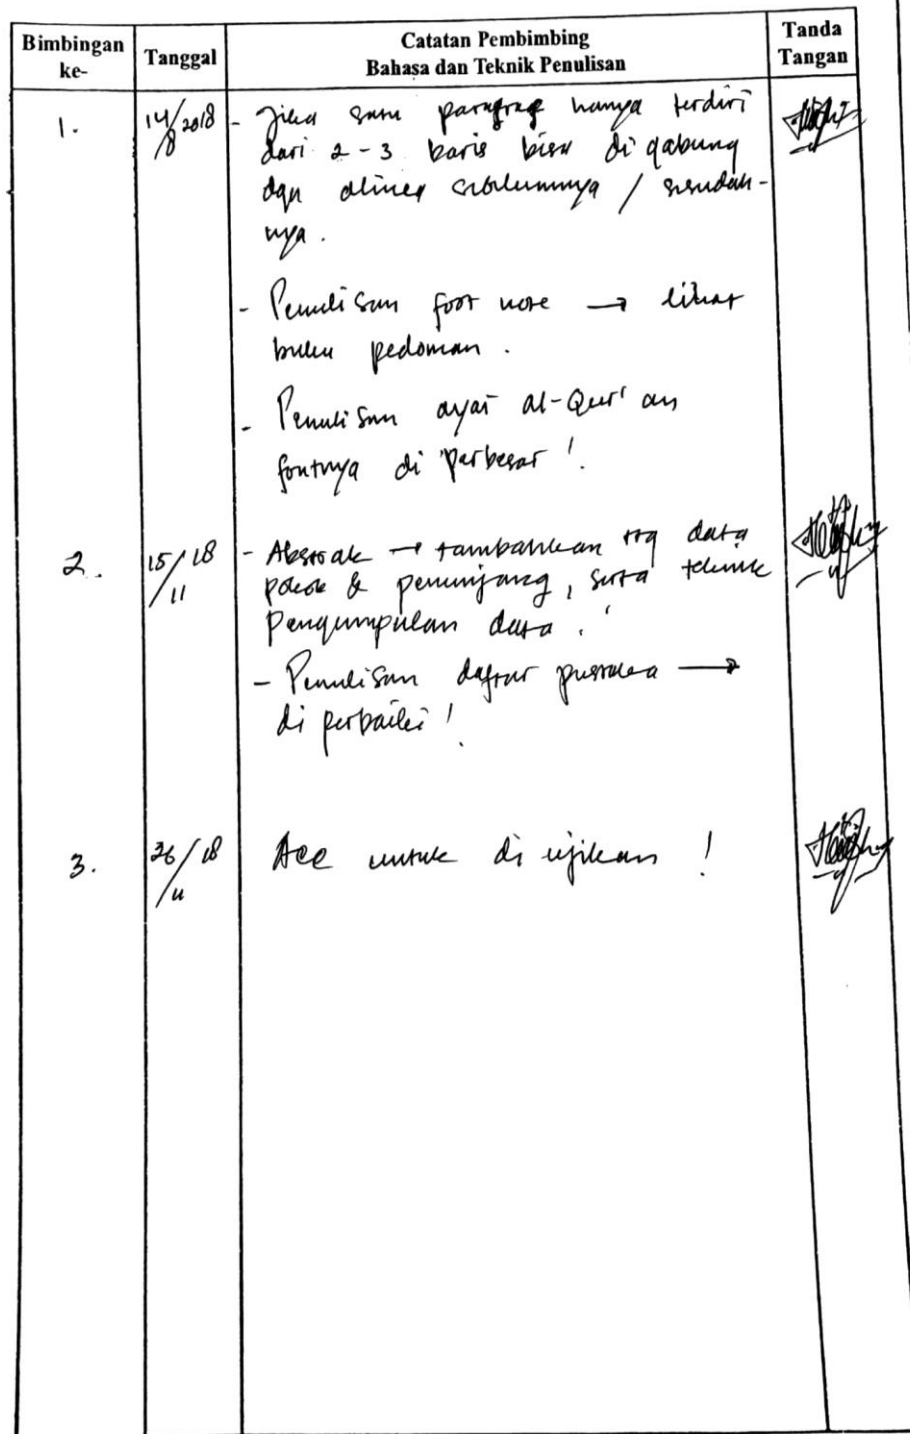 Bimbingan ke-
Tanggal
Catatan Pembimbing
Bahasa dan Teknik Penulisan
Tanda Tangan
1. 14/8 2018 - Jika satu paragraf hanya terdiri
dari 2-3 baris bisa di gabung
dgn alinea sebelumnya / sesudah-
nya.
- Penulisan foot note → lihat
buku pedoman.
- Penulisan ayat al-Qur'an
fontnya di perbesar !
2. 15/11 18 - Abstrak → tambahkan ttg data
pokok & penunjang, serta teknik
pengumpulan data !
- Penulisan daftar pustaka →
di perbaiki !
3. /11 18 Acc untuk di ujikan !